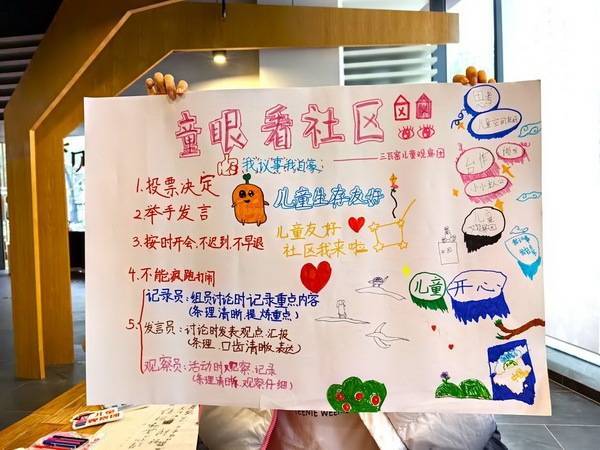 童眼看社区
我议事我自豪
——三瓦窑儿童观察团
儿童生存友好
1.投票决定
2.举手发言
儿童友好
社区我来啦
3.按时开会,不迟到,不早退
4.不能疯跑打闹
5.
记录员:组员讨论时记录重点内容
(条理清晰,提炼重点)
发言员:讨论时发表观点、汇报
(条理、口齿清晰、表达)
观察员:活动时观察、记录
(条理清晰、观察仔细)
思考
儿童空间友好
合作
小小主人
儿童
观察团
儿童
开心